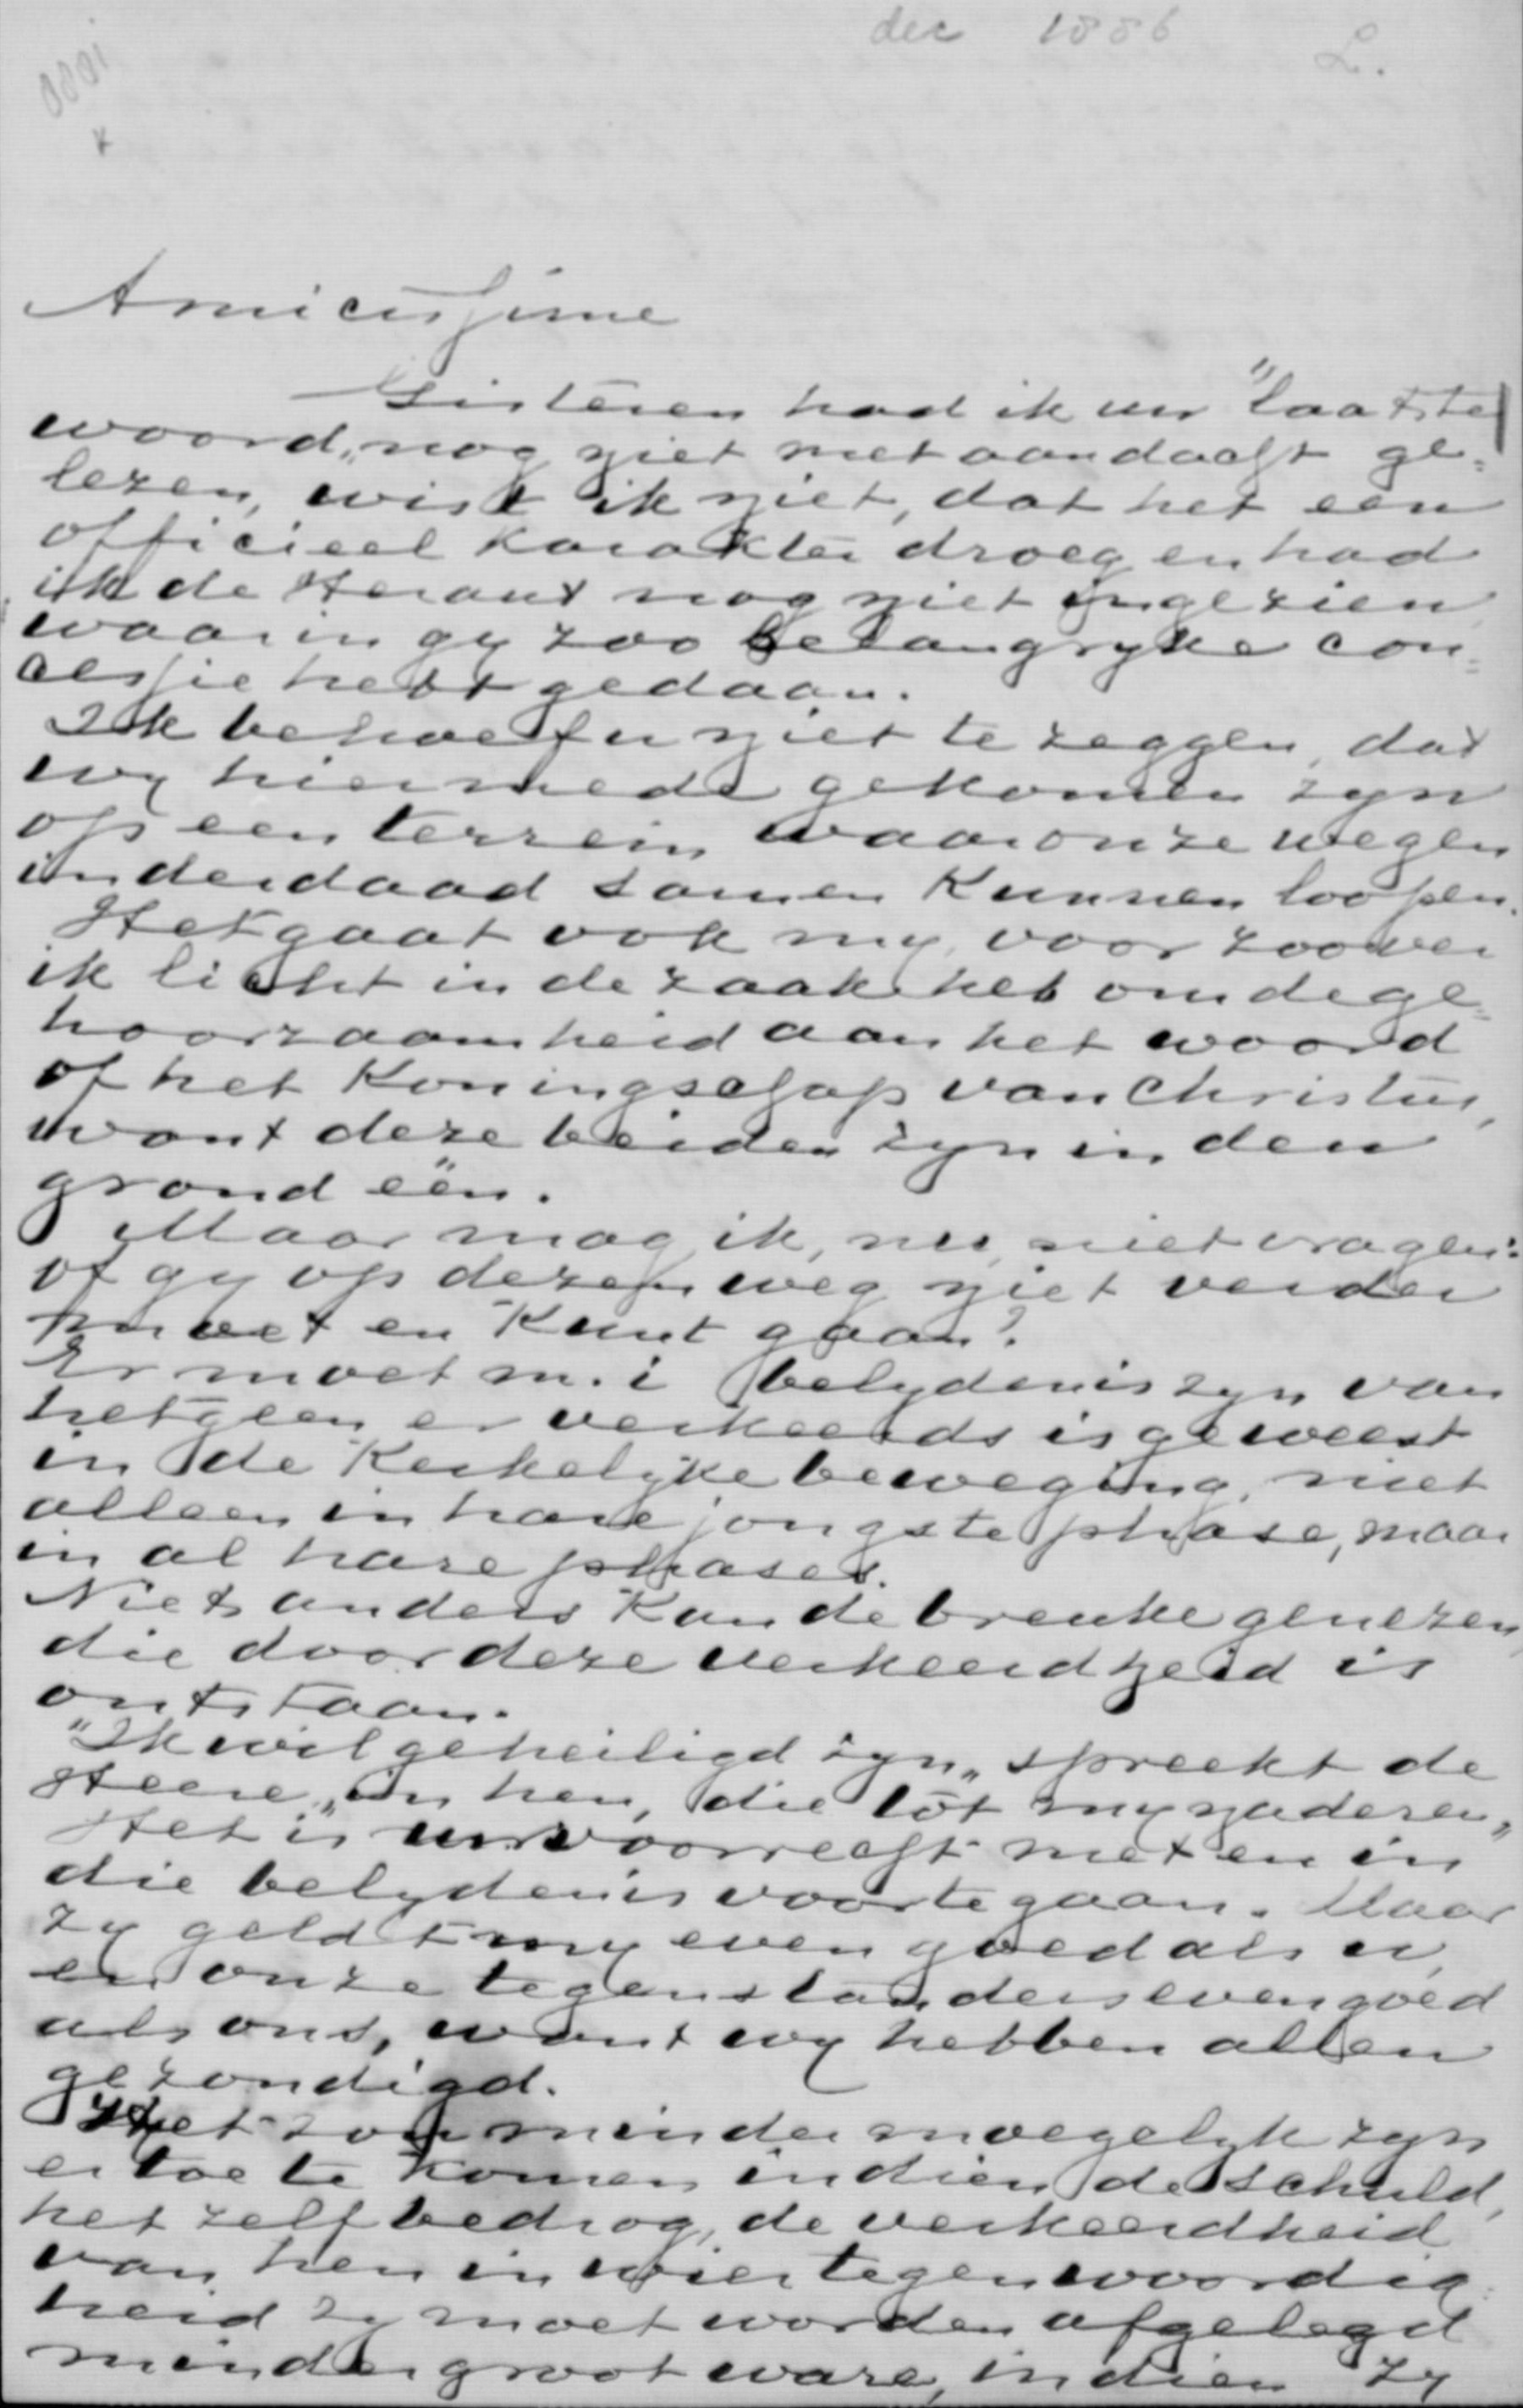 dec 1886 L.
Amicissime
Gisteren had ik uw "laatste
woord" nog niet met aandacht ge=
lezen, wist ik niet, dat het een
officieel karakter droeg en had
ik de Heraut nog niet ingezien,
waarin gy zoo belangryke con=
cessie hebt gedaan.
Ik behoef u niet te zeggen, dat
wy hiermede gekomen zyn
op een terrein, waar onze wegen
inderdaad samen kunnen loopen.
Het gaat ook my, voor zoover
ik licht in de zaak heb om de ge=
hoorzaamheid aan het woord
of het Koningschap van Christus,
want deze beiden zyn in den
grond een.
Maar mag ik, nu, niet vragen:
of gy op dezen weg niet verder
moet en kunt gaan?
Er moet m. i belydenis zyn van
hetgeen er verkeerds is geweest
in de Kerkelyke beweging, niet
alleen in hare jongste phase, maar
in al hare phases.
Niet anders kan de breuke genezen,
die door deze verkeerdheid is
ontstaan.
"Ik wil geheiligd zyn" spreekt de
Heere, "in hen, die tot my naderen"
Het is uw voorrecht met en in
die belydenis voor te gaan. Maar
zy geldt my even goed als u,
en onze tegenstanders evengoed
als ons, want wy hebben allen
gezondigd.
Het zou minder moegelyk zyn
er toe te komen indien de schuld,
het zelfbedrog, de verkeerdheid
van hen in wier tegenwoordig=
heid zy moet worden afgelegd
minder groot ware, indien zy